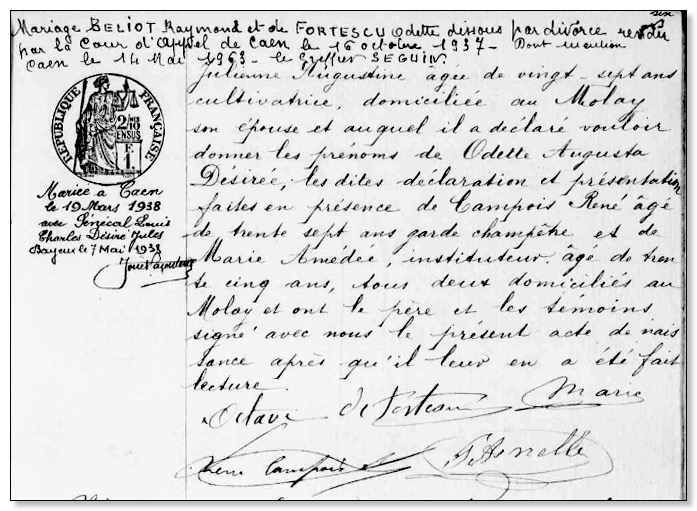 Mariage BELIOT Raymond et de FORTESCU Odette dissous par divorce rendu
par la Cour d'Appel de Caen le 16 octobre 1937 - Dont mention
Caen le 14 Mai 1963 - le Greffier SEGUIN.
Julienne Augustine âgée de vingt-sept ans
cultivatrice, domiciliée au Molay
son épouse et auquel il a déclaré vouloir
donner les prénoms de Odette Augusta
Désirée; les dites déclaration et présentation
faites en présence de Campois René âgé
de trente sept ans garde champêtre et de
Marie Amedée, instituteur, âgé de tren
te cinq ans, tous deux domiciliés au
Molay et ont le père et les témoins
signé avec nous le présent acte de nais
sance après qu'il leur en a été fait
lecture.
RÉPUBLIQUE FRANÇAISE
2/10 EN SUS
F. 1
Mariée à Caen
le 19 Mars 1938
avec Sénécal Louis
Charles Désiré Jules
Bayeux le 7 Mai 1938
Octave de Fortescu Marie
René Campois